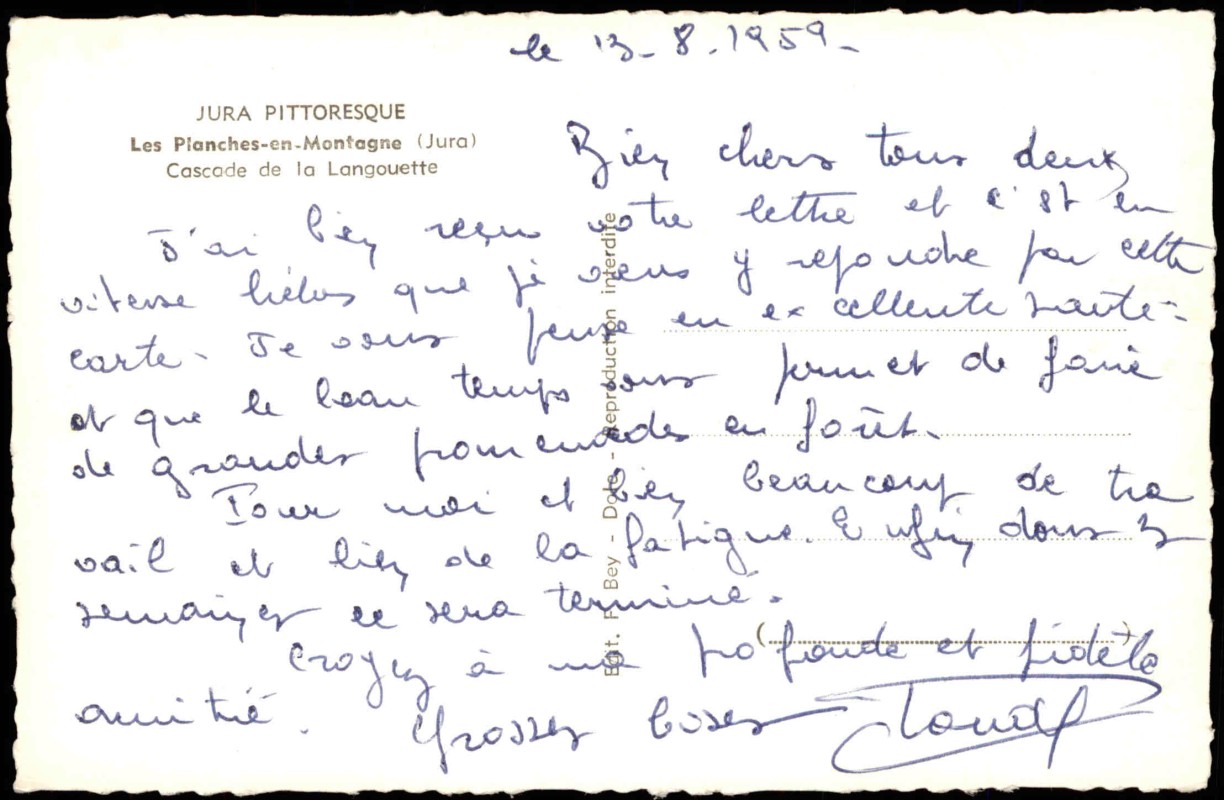 le 13-8-1959-
JURA PITTORESQUE
Les Planches-en-Montagne (Jura)
Cascade de la Langouette
Bien chers tous deux
J'ai bien reçu votre lettre et c'est en
vitesse hélas que je viens y répondre par cette
carte- Je vous pense en excellente santé-
et que le beau temps vous permet de faire
de grandes promenades en forêt.
Pour moi et bien beaucoup de tra
vail et bien de la fatigue. Enfin dans 3
semaines ce sera terminé.
Croyez à ma profonde et fidèle
amitié. Grosses bises
Edit. F. Bey - Dole - Reproduction interdite